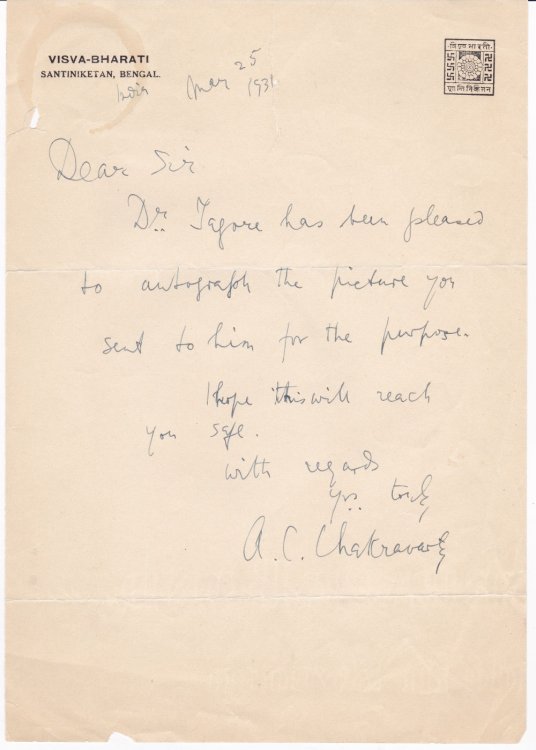 VISVA-BHARATI
SANTINIKETAN, BENGAL.
India Mar 25 1931
विश्व भारती
शान्तिनिकेतन
Dear Sir
Dr. Tagore has been pleased
to autograph the picture you
sent to him for the purpose.
I hope this will reach
you safe.
with regards
Yrs. truly
A. C. Chakravarty